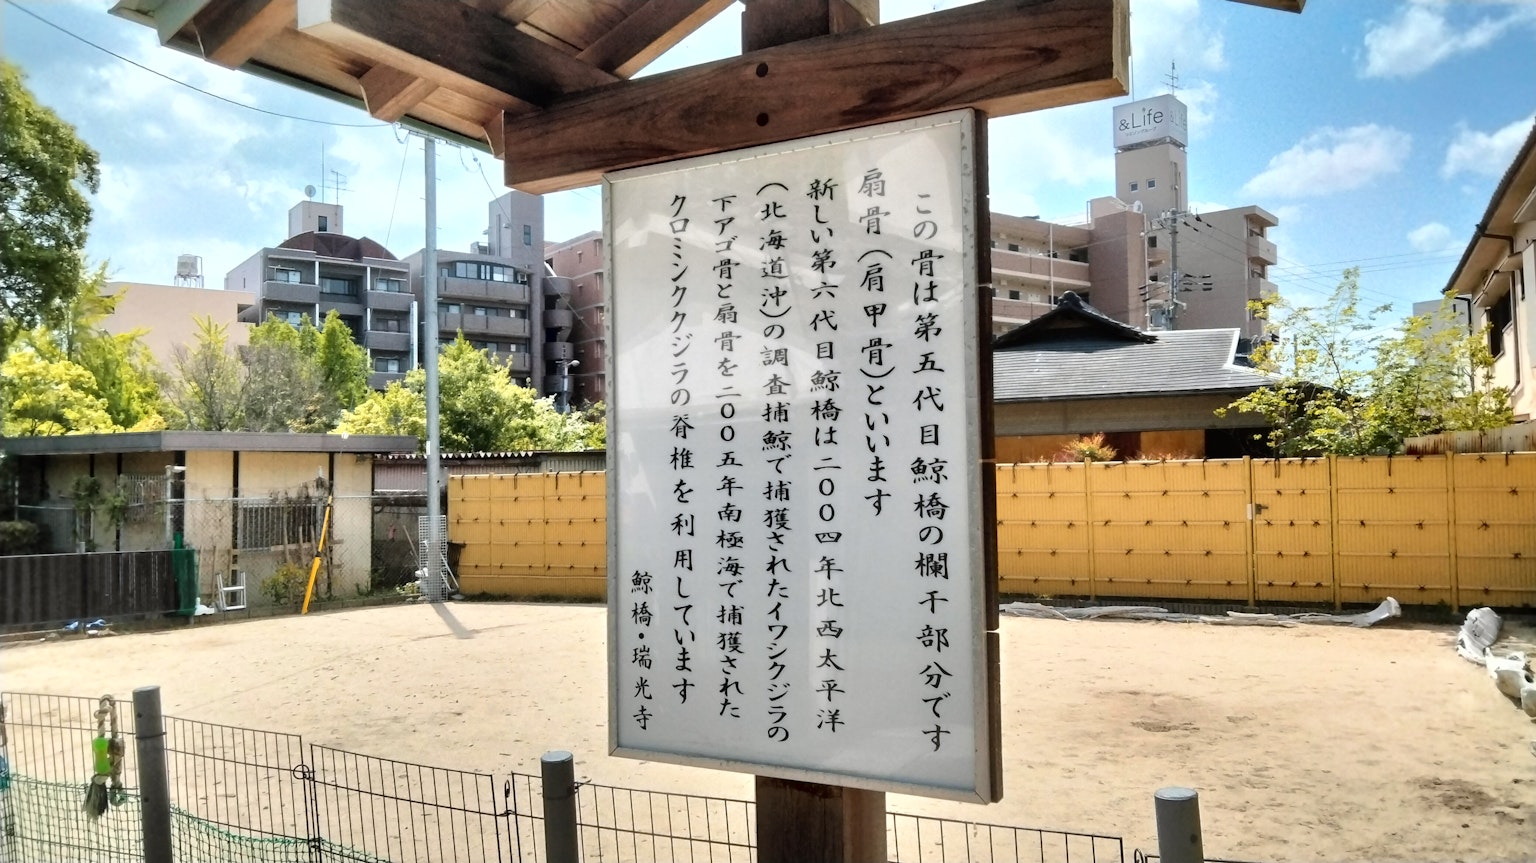 この骨は第五代目鯨橋の欄干部分です
扇骨（肩甲骨）といいます
新しい第六代目鯨橋は二００四年北西太平洋
（北海道沖）の調査捕鯨で捕獲されたイワシクジラの
下アゴ骨と扇骨を二００五年南極海で捕獲された
クロミンククジラの脊椎を利用しています
鯨橋・瑞光寺
&Life